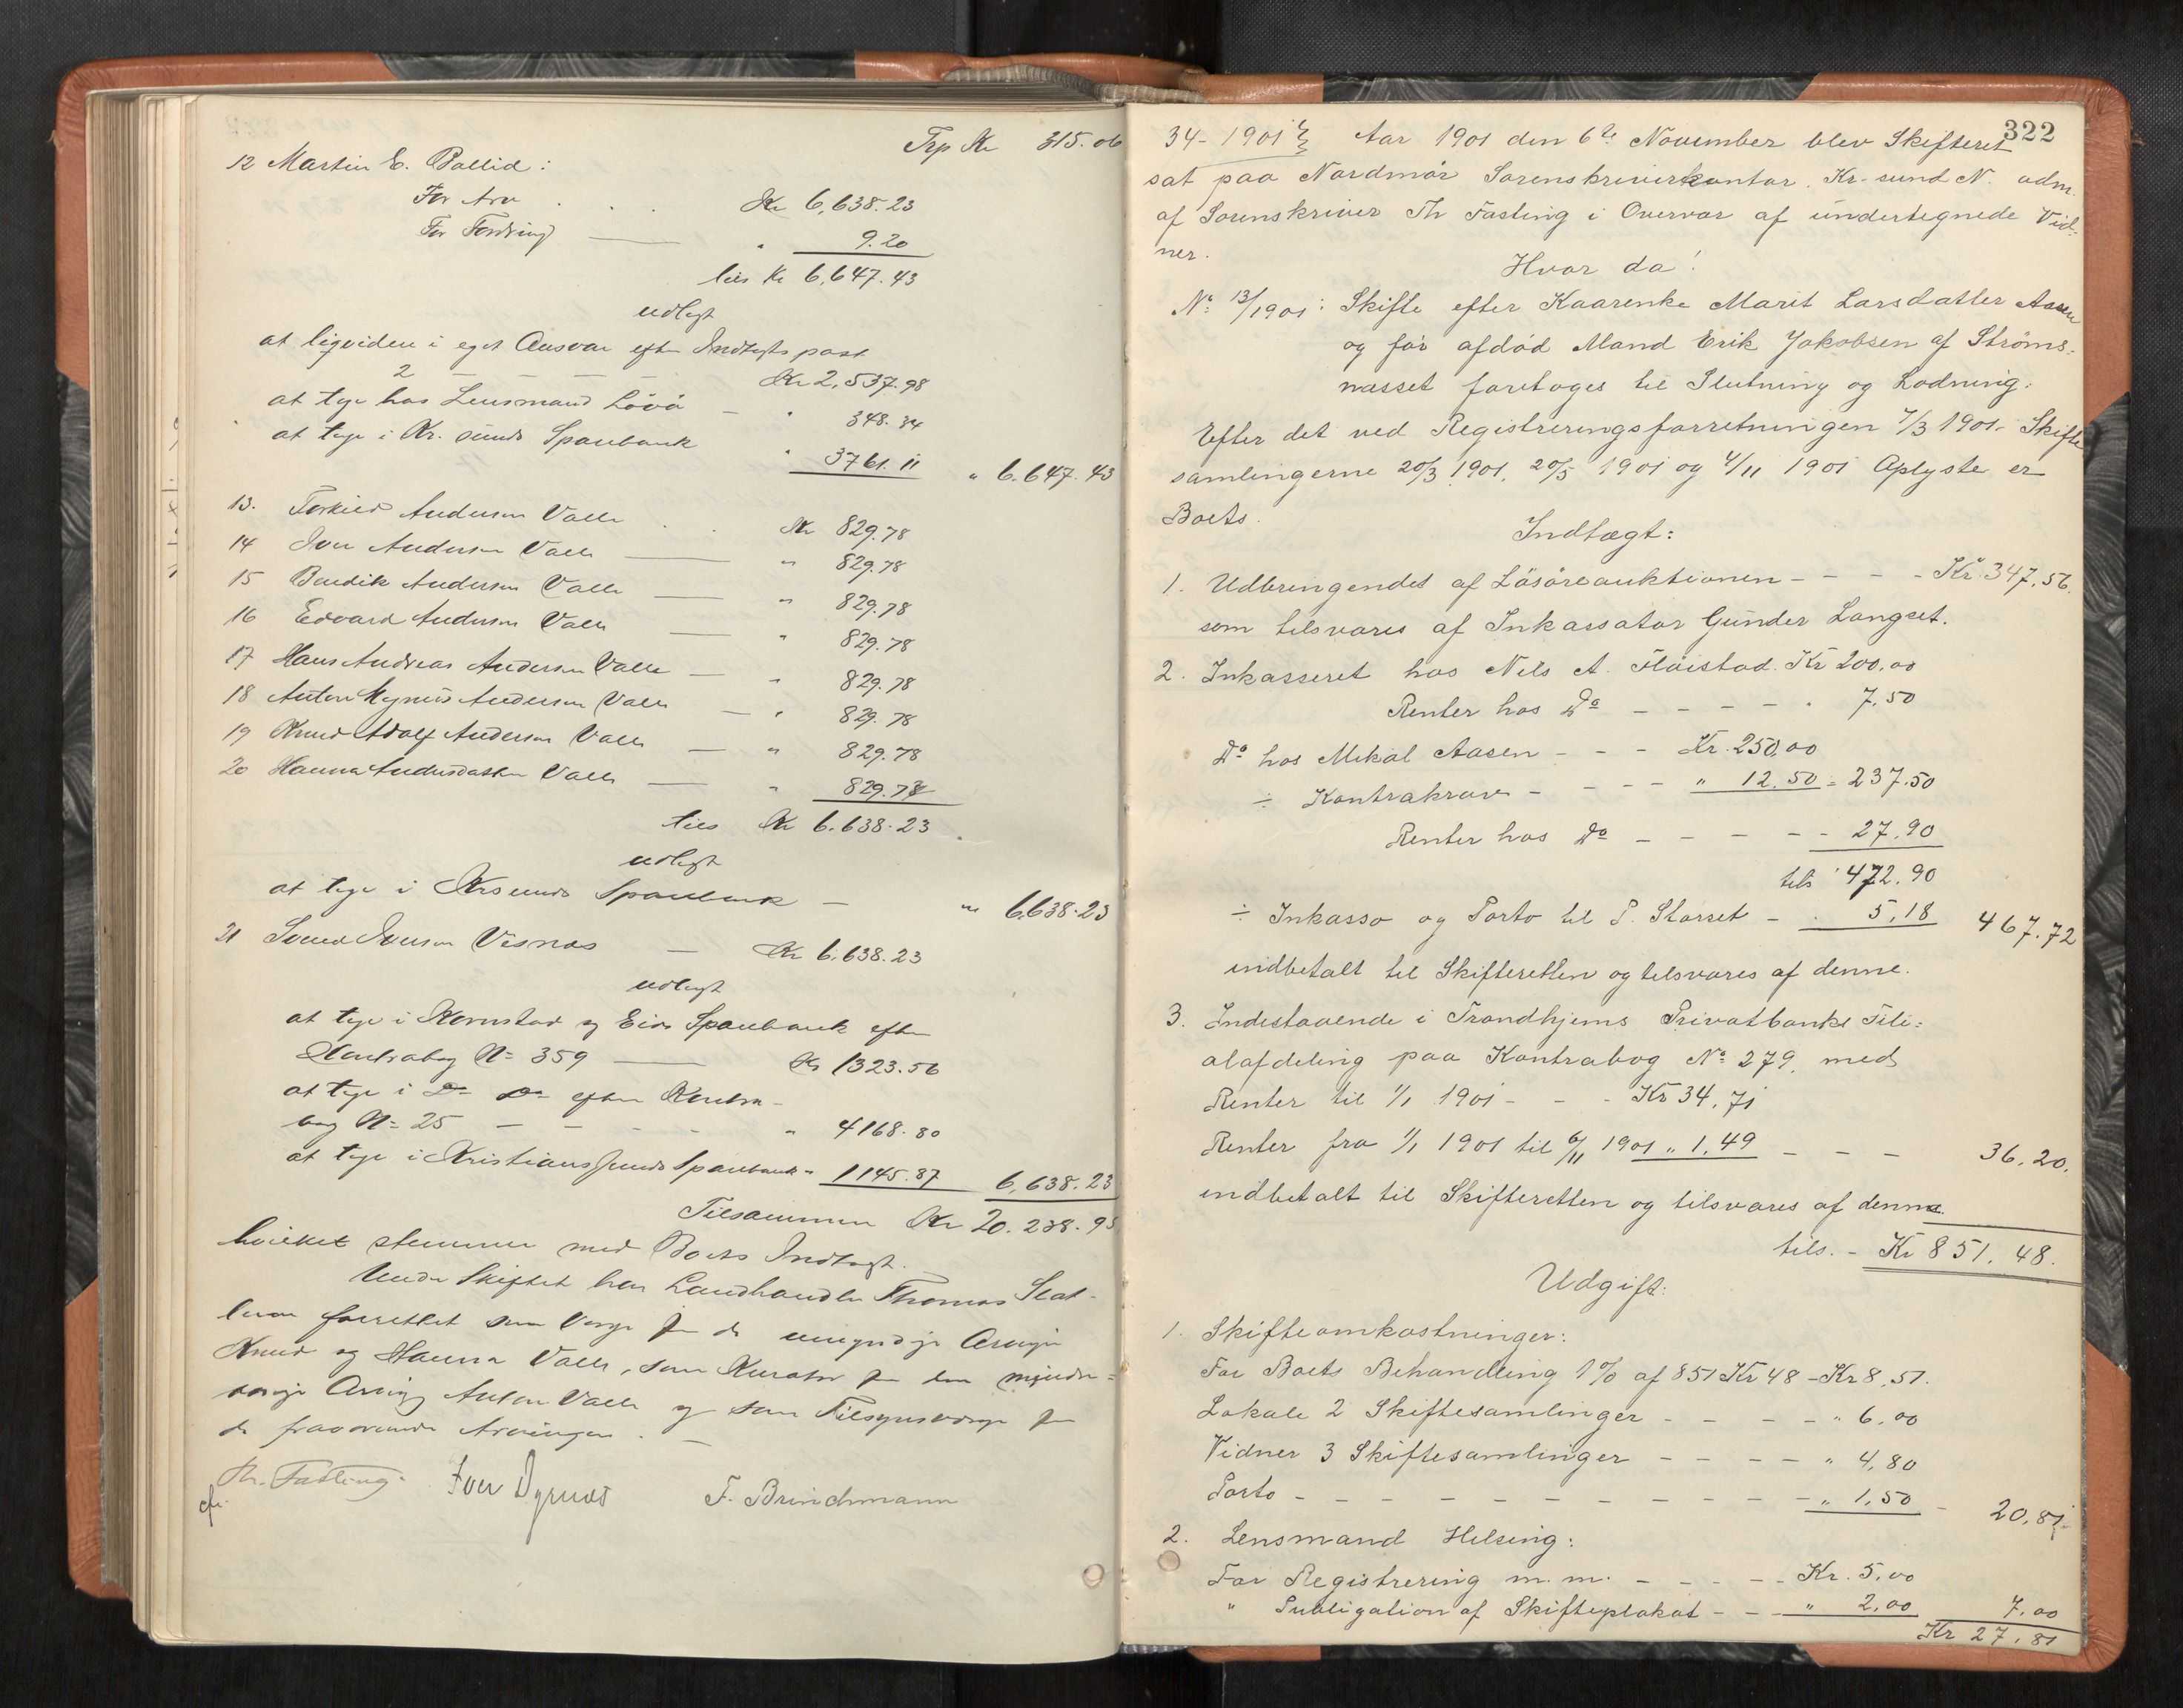 Trp Kr 315.06
12 Martin E. Bollid:
For Arv . . . Kr 6,638.23
For Fordring — " 9.20
tils Kr 6,647.43
udlagt
at ligvidere i eget Ansvar efter Indtægts post
2 — — — — Kr 2,537.98
at tage hos Lensmand Lövö — " 348.34
at tage i Kr.sunds Sparebank " 3761.11 " 6.647.43
13. Torkild Andersen Valle . . Kr 829.78
14 Iver Andersen Valle — " 829.78
15 Bendik Andersen Valle — " 829.78
16 Edvard Andersen Valle — " 829.78
17 Hans Andreas Andersen Valle — " 829.78
18 Anton Magnus Andersen Valle — " 829.78
19 Knud Adolf Andersen Valle — " 829.78
20 Hanna Andersdatter Valle — " 829.77
tils Kr 6.638.23
udlagt
at tage i Krsunds Sparebank — " 6638.23
21 Svend Iversen Visnæs — Kr 6.638.23
udlagt
at tage i Kornstad og Eids Sparebank efter
Kontrabog No 359 — Kr 1323.56
at tage i Do Do efter Kontra-
bog No 25 — — - - " 4168.80
at tage i Kristianssunds Sparebank " 1145.87 6,638.23
Tilsammen Kr 20.238.95
hvilket stemmer med Boets Indtægt.
Under Skiftet har Landhandler Thomas Slat-
lem forrettet som Verge for de umyndige Arvinger
Knud og Hanna Valle, som Kurator for den mindre=
aarige Arving Anton Valle og som Tilsynsverge for
de fraværende Arvinger. —
Th. Fasting. Iver Dyrnæs F. Brinchmann
cfr.
322
34-1901 Aar 1901 den 6te November blev Skifteret
sat paa Nordmör Sorenskriverkontor. Kr-sund N. adm.
af Sorenskriver Th Fasting i Overvær af undertegnede Vid-
ner.
Hvor da!
No 13/1901: Skifte efter Kaarenke Marit Larsdatter Aasen
og för afdöd Mand Erik Jakobsen af Ströms=
næsset foretoges til Slutning og Lodning.
Efter det ved Registreringsforretningen 7/3 1901. Skifte
samlingerne 20/3 1901, 20/5 1901 og 4/11 1901 Oplyste er
Boets.
Indtægt:
1. Udbringendet af Lösöreauktionen - - - - Kr. 347,56.
som tilsvares af Inkassator Gunder Langset.
2. Inkasseret hos Nils A. Flöistad. Kr 200,00
Renter hos Do - - - - - " 7,50
Do hos Mikal Aasen - - - Kr. 250,00
÷ Kontrakrav - - - - " 12.50 = 237.50
Renter hos Do - - - - - 27.90
tils 472.90
÷ Inkasso og Porto til P. Storset - . 5,18 467.72
indbetalt til Skifteretten og tilsvares af denne.
3. Indestaaende i Trondhjems Privatbanks Fili=
alafdeling paa Kontrabog No 279, med
Renter til 1/1 1901 - - - Kr 34,71
Renter fra 1/1 1901 til 6/11 1901 " 1,49 - - - 36,20.
indbetalt til Skifteretten og tilsvares af denne.
tils. - Kr 851,48.
Udgift:
1. Skifteomkostninger:
For Boets Behandling 1% af 851 Kr 48 - Kr 8,51.
Lokale 2 Skiftesamlinger - - - - " 6,00
Vidner 3 Skiftesamlinger - - - - " 4,80
Porto - - - - - - - - - - " 1,50 - 20,81
2. Lensmand Helsing:
For Registrering m.m. - - - - - Kr. 5,00
" Publigation af Skifteplakat - - - " 2,00 7,00
Kr 27,81